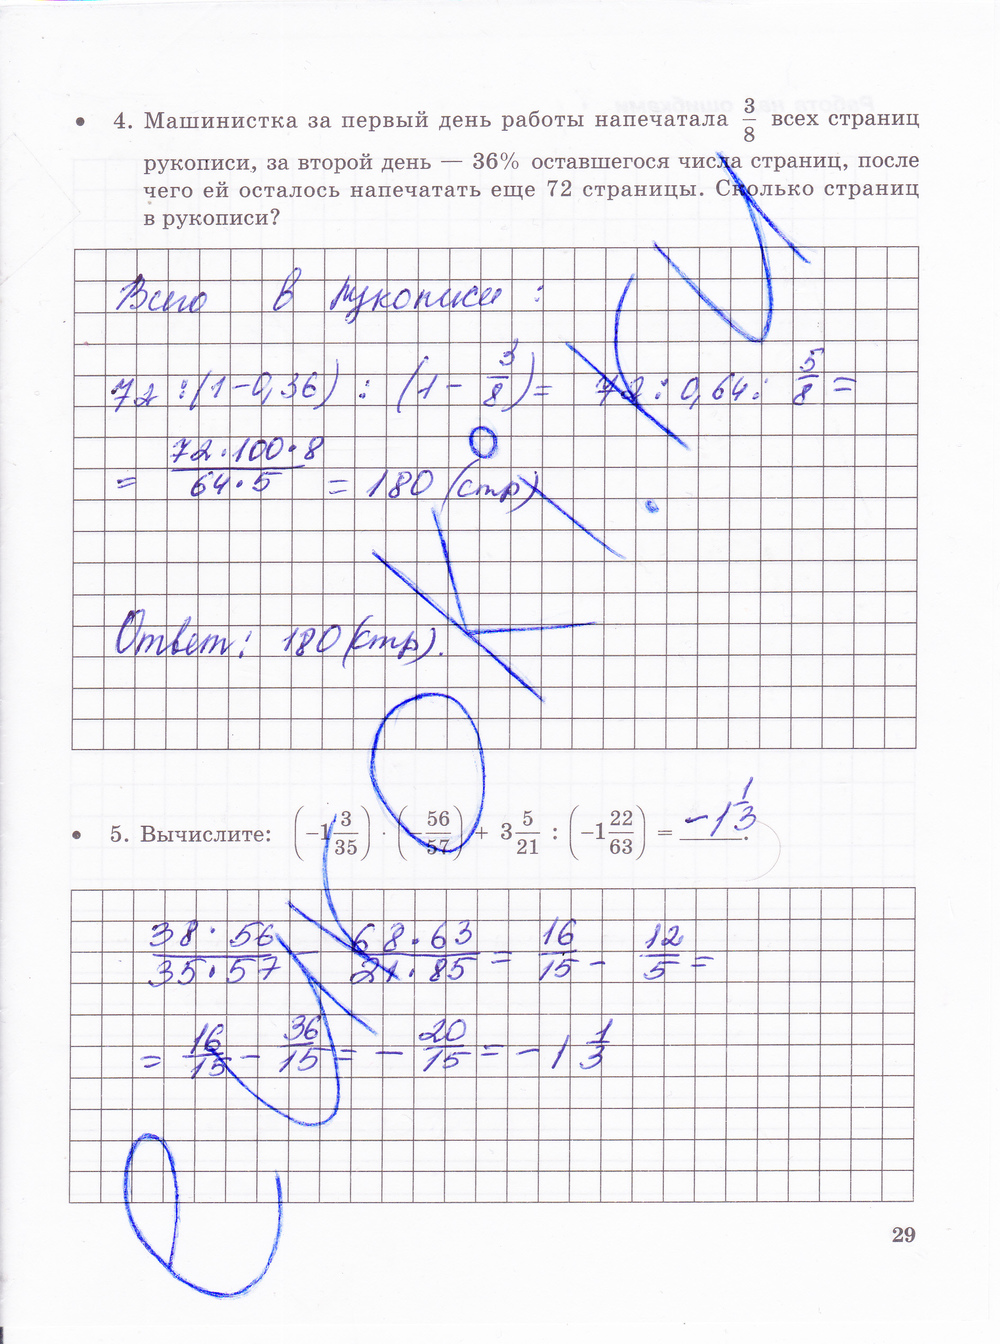 • 4. Машинистка за первый день работы напечатала 3/8 всех страниц
рукописи, за второй день — 36% оставшегося числа страниц, после
чего ей осталось напечатать еще 72 страницы. Сколько страниц
в рукописи?
Всего в рукописи:
72 : (1 - 0,36) : (1 - 3/8) = 72 : 0,64 : 5/8 =
= 72·100·8/64·5 = 180 (стр)
Ответ: 180 (стр).
• 5. Вычислите: (-1 3/35) · (-56/57) + 3 5/21 : (-1 22/63) = -1 1/3.
38·56/35·57 - 68·63/21·85 = 16/15 - 12/5 =
= 16/15 - 36/15 = - 20/15 = - 1 1/3
29